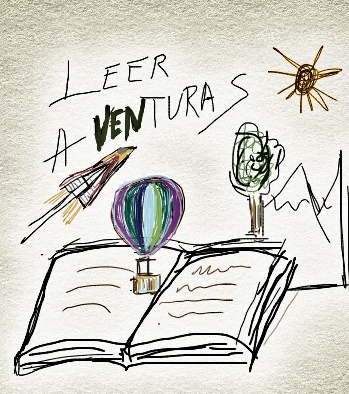 LEER
AVENTURAS